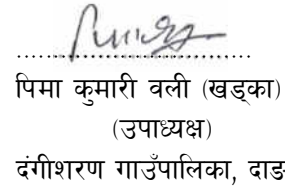 पिमा कुमारी वली (खड्का)
(उपाध्यक्ष)
दंगीशरण गाउँपालिका, दाङ